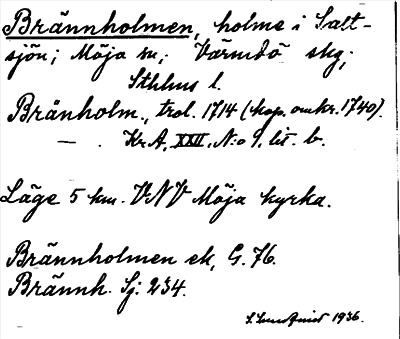 Brännholmen, holme i Salt-
sjön; Möja sn; Värmdö skg;
Sthlms l.
Bränholm., trol. 1714 (kop. omkr. 1740).
— . Kr.A, XXII, N:o 9, lit. b.
Läge 5 km. VNV Möja kyrka.
Brännholmen ek, G. 76.
Brännh. Sj. 234.
1936.